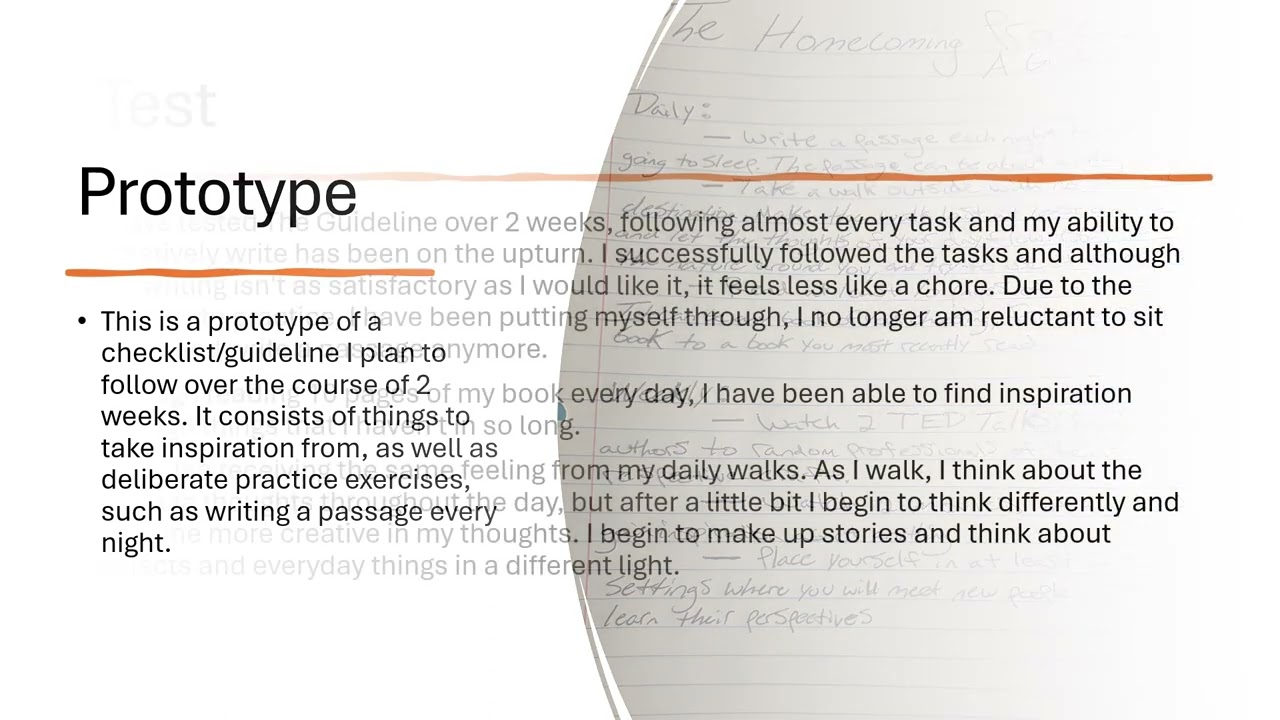 Test
Prototype
This is a prototype of a
checklist/guideline I plan to
follow over the course of 2
weeks. It consists of things to
take inspiration from, as well as
deliberate practice exercises,
such as writing a passage every
night.
tested The Guideline over 2 weeks, following almost every task and my ability to
write has been on the upturn. I successfully followed the tasks and although
writing isn't as satisfactory as I would like it, it feels less like a chore. Due to the
have been putting myself through, I no longer am reluctant to sit
passage anymore.
reading 10 pages of my book every day, I have been able to find inspiration
things that I haven't in so long.
receiving the same feeling from my daily walks. As I walk, I think about the
thoughts throughout the day, but after a little bit I begin to think differently and
more creative in my thoughts. I begin to make up stories and think about
and everyday things in a different light.
The Homecoming
Daily:
— Write a passage each night
going to sleep. The passage can be about
— Take a walk outside with no
destination.
and let the thoughts of your day
book to a book you most recently read
Weekly:
— Watch 2 TED Talks
authors to random professionals
— Place yourself in at least
settings where you will meet new people
learn their perspectives